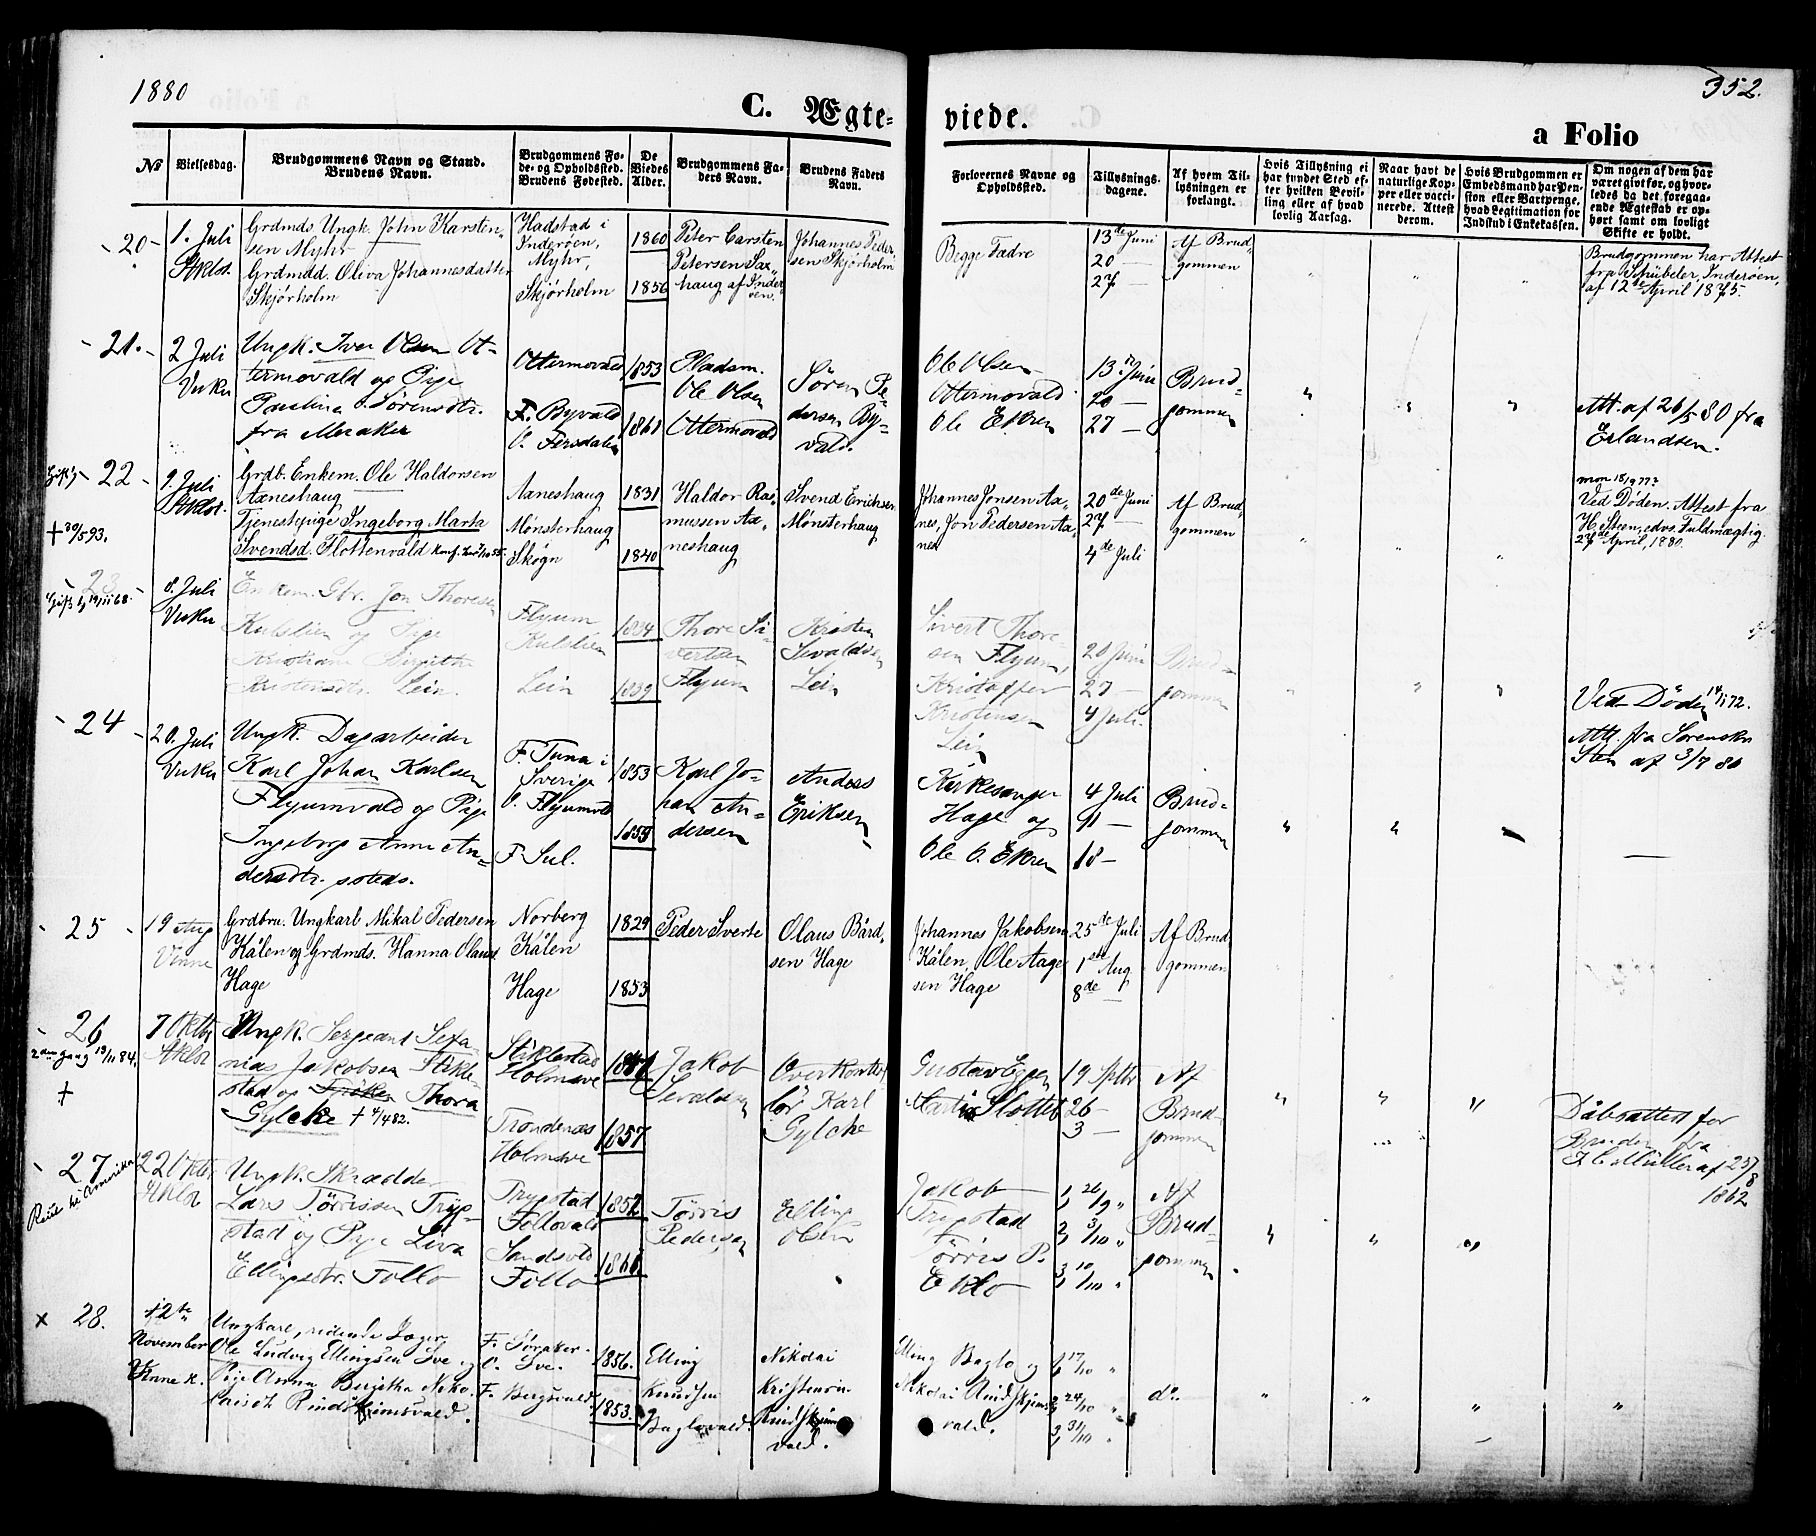 1880
352.
C. Ægte-
viede.
a Folio
No
Vielsesdag.
Brudgommens Navn og Stand.
Brudens Navn.
Brudgommens Fø-
de- og Opholdssted.
Brudens Fødested.
De
Viedes
Alder.
Brudgommens Fa-
ders Navn.
Brudens Faders
Navn.
Forlovernes Navne og
Opholdssted.
Tillysnings-
dagene.
Af hvem Til-
lysningen er
forlangt.
Hvis Tillysning ei
har fundet Sted ef-
ter hvilken Bevil-
ling eller af hvad
lovlig Aarsag.
Naar havt de
naturlige Kop-
per eller vacci-
nerede. Attest
derom.
Hvis Brudgommen er
Embedsmand har Pen-
sion eller Vartpenge,
hvad Legitimation for
Indskud i Enkekassen.
Om nogen af dem har
været givt før, og hvor-
ledes da det foregaa-
ende Ægteskab er op-
hørt samt om lovligt
Skifte er holdt.
20
1. Juli
Stklst.
Grdmds Ungk. John Karsten-
sen Myhr
Grdmdd. Oliva Johannesdatter
Skjørholm
Hadstad i
Inderøen,
Myhr,
Skjørholm
1860
1856
Peter Carsten
Petersen Sax-
haug af Inder-
øen.
Johannes Peder-
sen Skjørholm
Begge Fadre
13de Juni
20 —
27 —
Af Brud-
gommen
Brudgommen har Attest
fra Schübeler, Inderøen,
af 12te April 1875.
21.
2 Juli
Vuku
Ungk. Iver Olsen Ot-
termovald og Pige
Paulina O. Sørensdtr.
fra Meraker
Ottermovald
F. Byvald
O. Færsdalen
1853
1861
Pladsm.
Ole Olsen
Ottermovald
Søren Pe-
dersen By-
vald.
Ole Olsen
Ottermovald
Ole Ekren
13de Juni
20 —
27 —
Brud-
gommen
Att. af 26/5 80 fra
Erlandsen.
22
† 30/5 93.
9. Juli
Stklst.
Grdb. Enkem. Ole Haldorsen
Axneshaug
Tjenestepige Ingeborg Marta
Svendsd. Slottenvald
Axneshaug
Mønsterhaug
Skogn
1831
1840
Haldor Ras-
mussen Ax-
neshaug
Svend Eriksen
Mønsterhaug
Johannes Jonsen Ax-
nes, Jon Pedersen Ax-
nes
20de Juni
27 —
4de Juli
Af Brud-
gommen
Ved Døden. Attest fra
H. Steen, edsv. Fuldmægtig
27de April, 1880.
23
8. Juli
Vuku
Enkem. Gbr. Jon Thoresen
Kulslien og Pige
Kristiane Birgitte
Kristensdtr. Lein.
Flyum
Kulslien
Lein
1834
1839
Thore Si-
vertsen
Flyum
Kristen
Sevaldsen
Lein
Sivert Thore-
sen Flyum,
Kristoffer
Kristensen
Lein
20 Juni
27 —
4 Juli.
Brud-
gommen
Ved Døden 14/1 72.
Att. fra Sorenskr
Sten af 3/7 80
24
20. Juli
Vuku
Ungk. Dagarbeider
Karl Johan Karlsen
Flyumvald og Pige
Ingeborg Anna An-
dersdtr. psteds.
F. Tuna i
Sverige
O. Flyumvd
F. Sul.
1853
1855
Karl Jo-
han An-
dersen
Anders
Eriksen
Kirkesanger
Hage og
Ole O. Ekren
4 Juli
11 —
18 —
Brud-
gommen
25
19 Aug
Vinne
Grdbru. Ungkarl Mikal Pedersen
Kålen og Grdmds. Hanna Olausd
Hage
Norberg
Kålen
Hage
1829
1853
Peder Sverte
Olaus Bård-
sen Hage
Johannes Jakobsen
Kålen, Ole Aage-
sen Hage
25de Juli
1ste Aug
8de —
Af Brud-
gommen
26
2den gang 19/11 84.
†
7 Oktbr
Stklst
Ungk. Sergeant Sefa-
nias Jakobsen Stikle-
stad og Frøken Thora
Gylche † 4/4 82.
Stiklestad
Holmsve
Trondenæs
Holmsve
1857
Jakob
Sevaldsen
Overkontrol-
lør Karl
Gylche
Gustav Eggen
Martin Slottet
19 Sptbr
26 —
3 —
Af
Brud-
gommen
Dåbsattest for
Bruden fra
J. C. Müller af 25/8
1862
27
Reist til Amerika
22 Oktbr
Stklst
Ungk. Skrædder
Lars Tørrissen Tryg-
stad og Pige Liva
Ellingsdtr. Follo
Trygstad
Follovald
Sandsvld
Follo
1852
Tørris
Pedersen
Elling
Olsen
Jakob
Trygstad
Tørris P.
Eklo
1, 26/9 "
2, 3/10 "
3, 10/10 "
Af
Brud-
gommen
x 28.
12te
November
Vinne K.
Ungkarl, ridende Jæger,
Ole Ludvig Ellingsen Sve og
Pige Anna Bergitha Niko-
laisdt Rindskjimsvald.
F. Søraker.
O. Sve.
F. Bergsvald.
1856.
1853.
Elling
Knudsen
Baglovald.
Nikolai
Kristensen
Rindskjims-
vald.
Elling Baglo og
Nikolai Rindskjims-
vald.
1, 17/10 "
2, 24/10 "
3, 31/10 "
do.